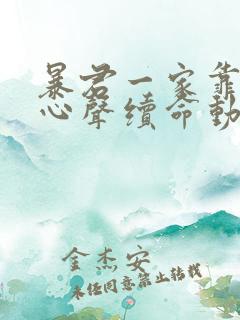 暴君一家靠
心聲續命動
金杰安
未經同意禁止轉載